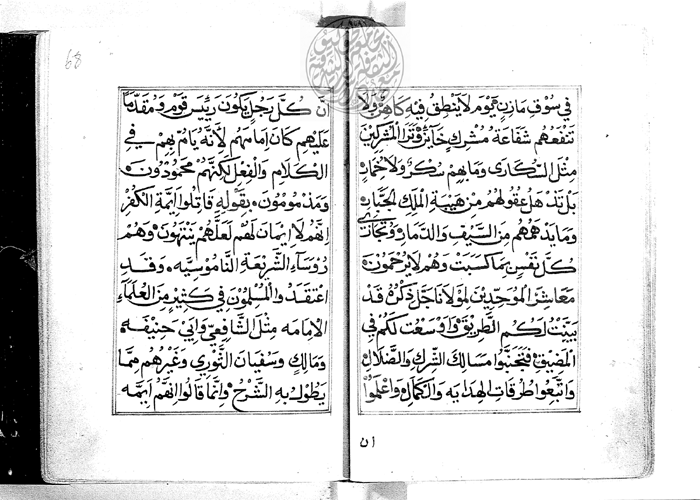 68
في سوق مازن يوم لا ينطق فيه كاهن ولا
تنفعهم شفاعة مشرك خاين وترا المشركين
مثل السكارى وما بهم سكر ولا خمار
بل تذهل عقولهم من هيبة الملك الجبار
وما يدهمهم من السيف والدمار
كل نفس بما كسبت وهم لا يرحمون
معاشر الموحدين لمولانا جل ذكره قد
بينت لكم الطريق واوسعت لكم في
المضيق فتجنبوا مسالك الشرك والضلال
واتبعوا طرقات الهدايه والكمال واعلموا
ان
ان كل رجل يكون رييس قوم ومقدما
عليهم كان امامهم لأنه يامر بهم في
الكلام والفعل لكنهم محمودون
ومذمومون بقوله قاتلوا ايمة الكفر
انهم لا ايمان لهم لعلهم ينتهون وهم
روساء الشريعة الناموسيه وقد
اعتقد والمسلمون في كثير من العلماء
الامامه مثل الشافعي وابي حنيفه
ومالك وسفيان الثوري وغيرهم مما
يطول به الشرح وانما قالوا انهم ايمه